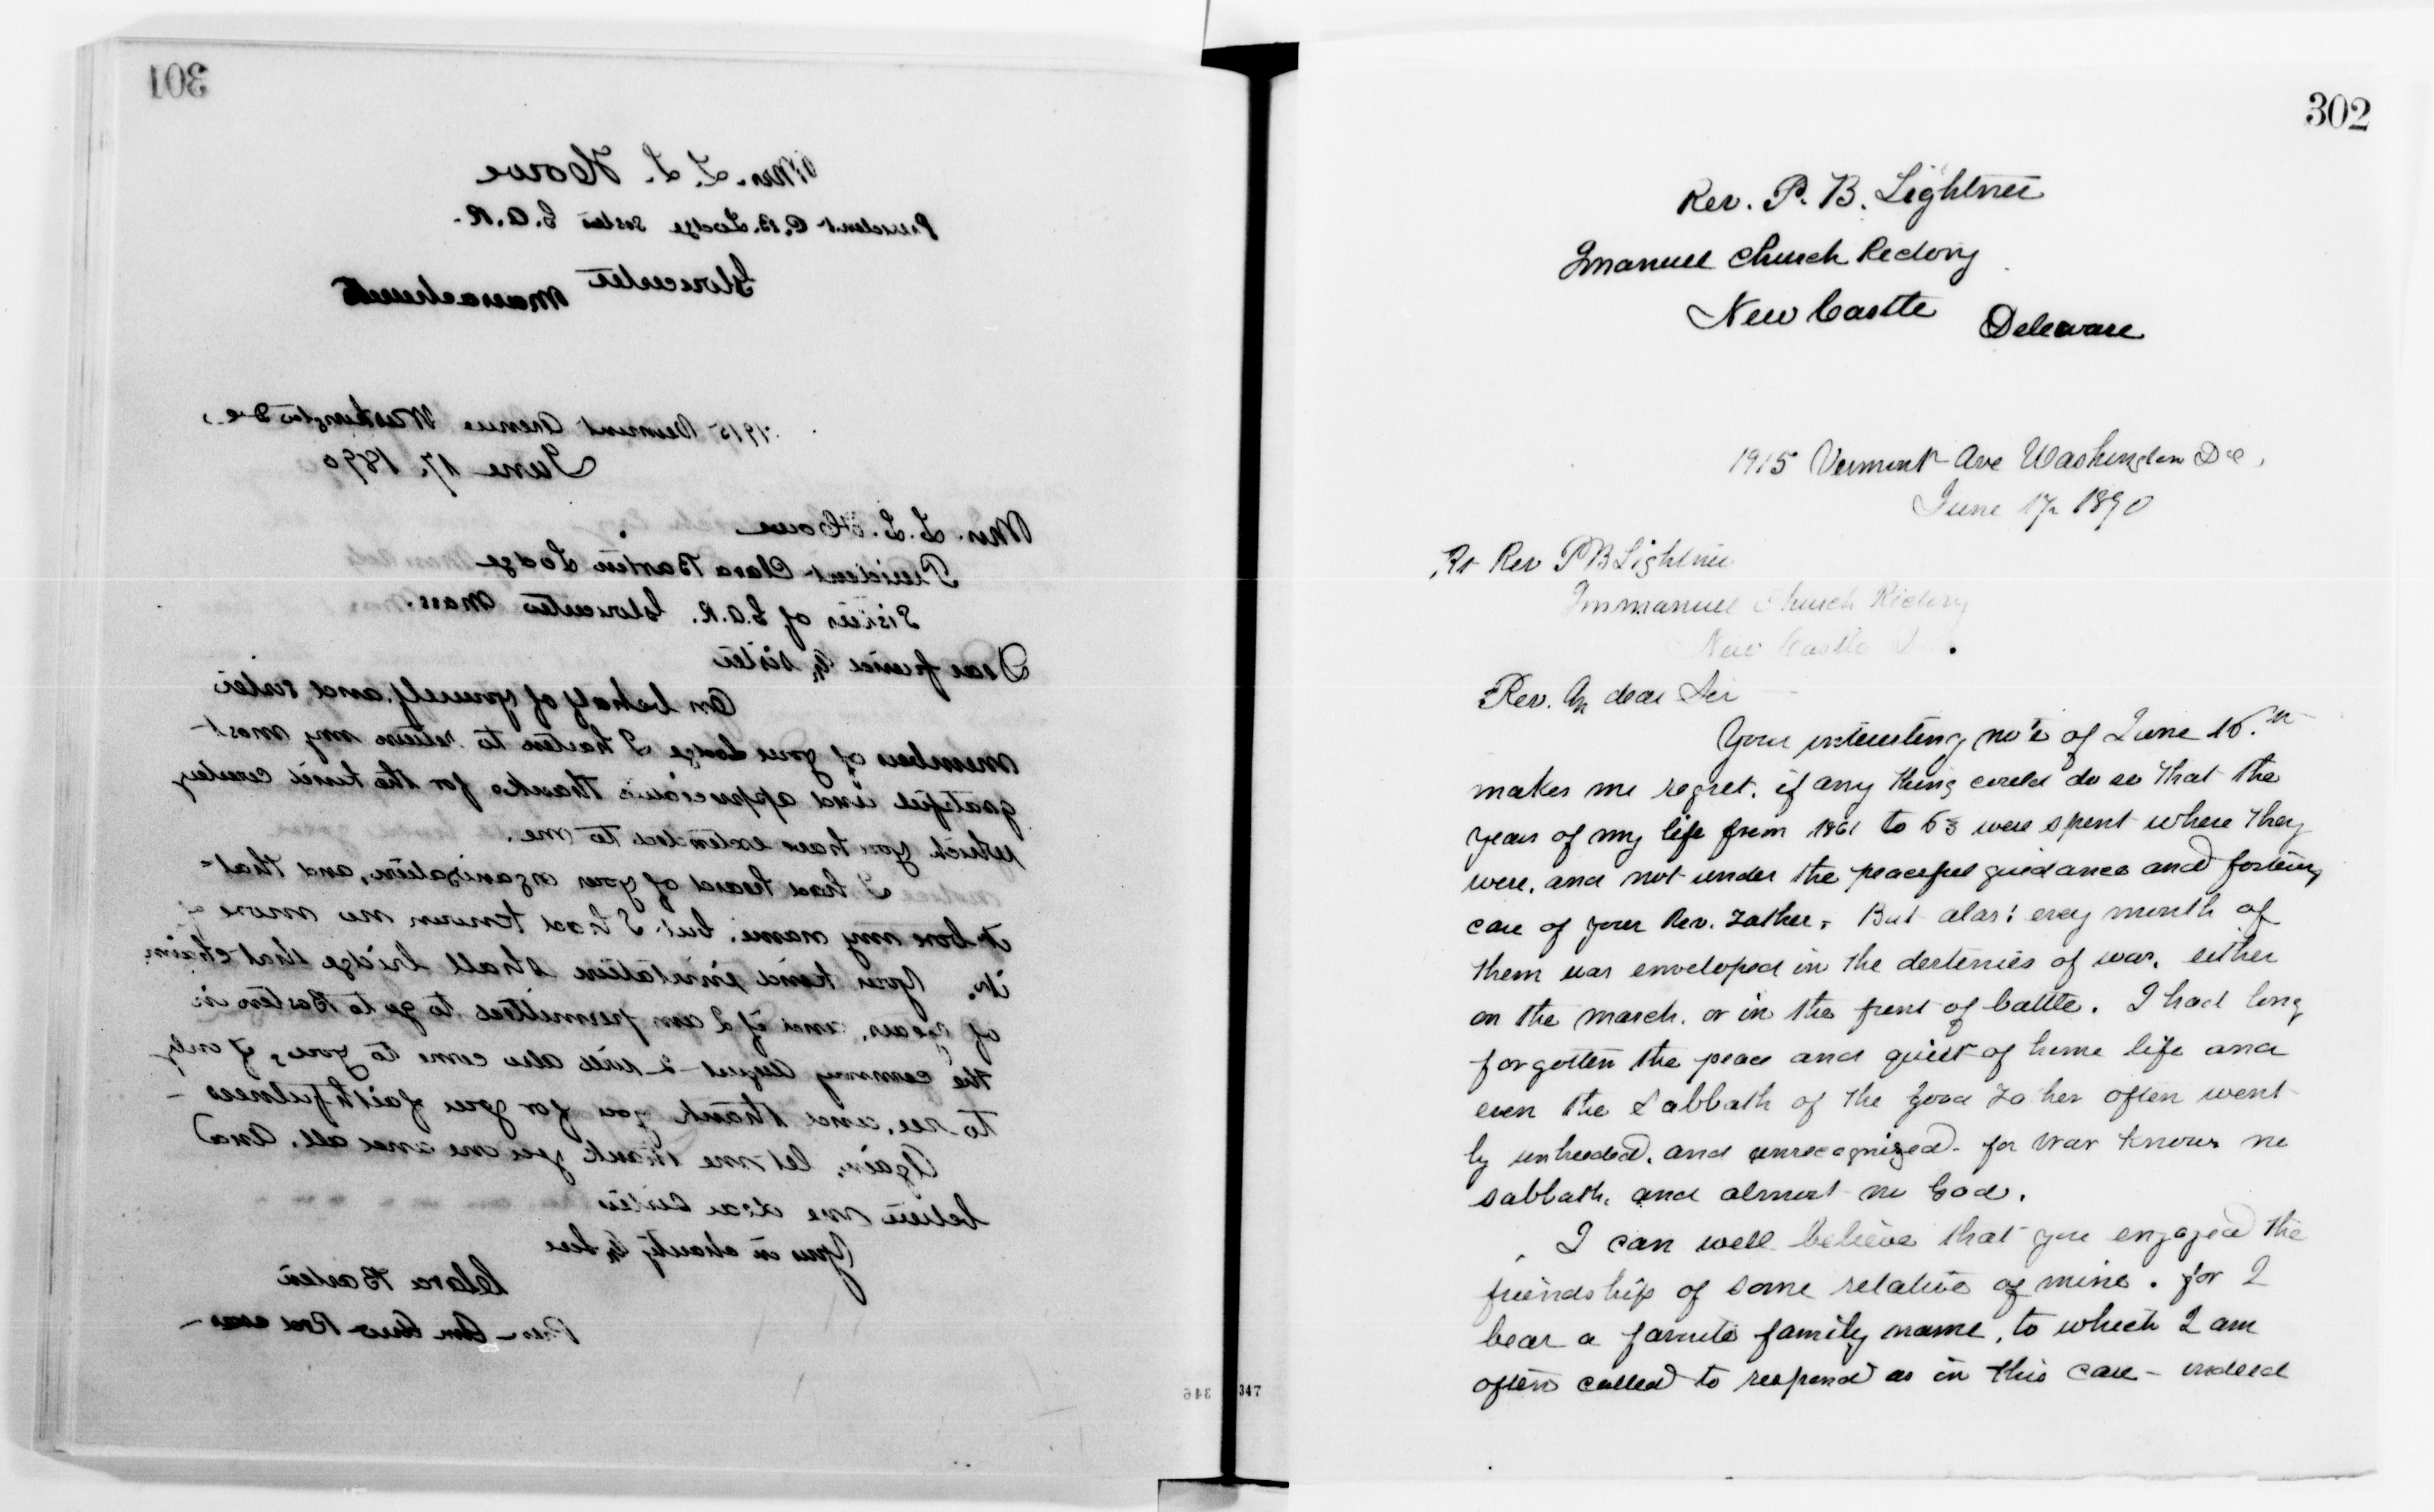 301
Mrs. L. L. Howe
President C. B. Lodge Sister G. A. R.
Gloucester Massachusetts
1915 Vermont Avenue Washington D C,
June 17, 1890
Mrs. L. L. Howe
President Clara Barton Lodge
Sisters of G.A.R. Gloucester Mass.
Dear friend & sister
On behalf of yourself and sister
members of your Lodge I hasten to return my most
grateful and appreciative thanks for the kind courtesy
which you have extended to me.
I had heard of your organization, and, that
it bore my name, but I had known no more of
it. Your kind invitation shall bridge that chasm
of years, and if I am permitted to go to Boston in
the coming August I will also come to you, if only
to see, and thank you for your faithfulness -
Again, let me thank you one and all. And
believe me dear sister
Your in charity & love
Clara Barton
Pres - Am Red Cross -
346
347
302
Rev. P. B. Lightner
Imanuel Church Rectory
New Castle Deleware
1915 Vermont Ave Washington D C,
June 17, 1890
Rt Rev P B Lightner
Immanuel Church Rectory
New Castle
Rev. & dear Sir
Your interesting note of June 16.th
makes me regret, if any thing could do so that the
years of my life from 1861 to 63 were spent where they
were, and not under the peaceful guidance and fostering
care of your Rev. Father, But alas! every month of
them was enveloped in the destinies of war, either
on the march, or in the front of battle. I had long
forgotten the peace and quiet of home life and
even the Sabbath of the good Father often went
by unheeded, and unrecognized - for war knows no
sabbath, and almost no God.
I can well believe that you enjoyed the
friendship of some relative of mine. for I
bear a favorite family name, to which I am
often called to respond as in this case - indeed